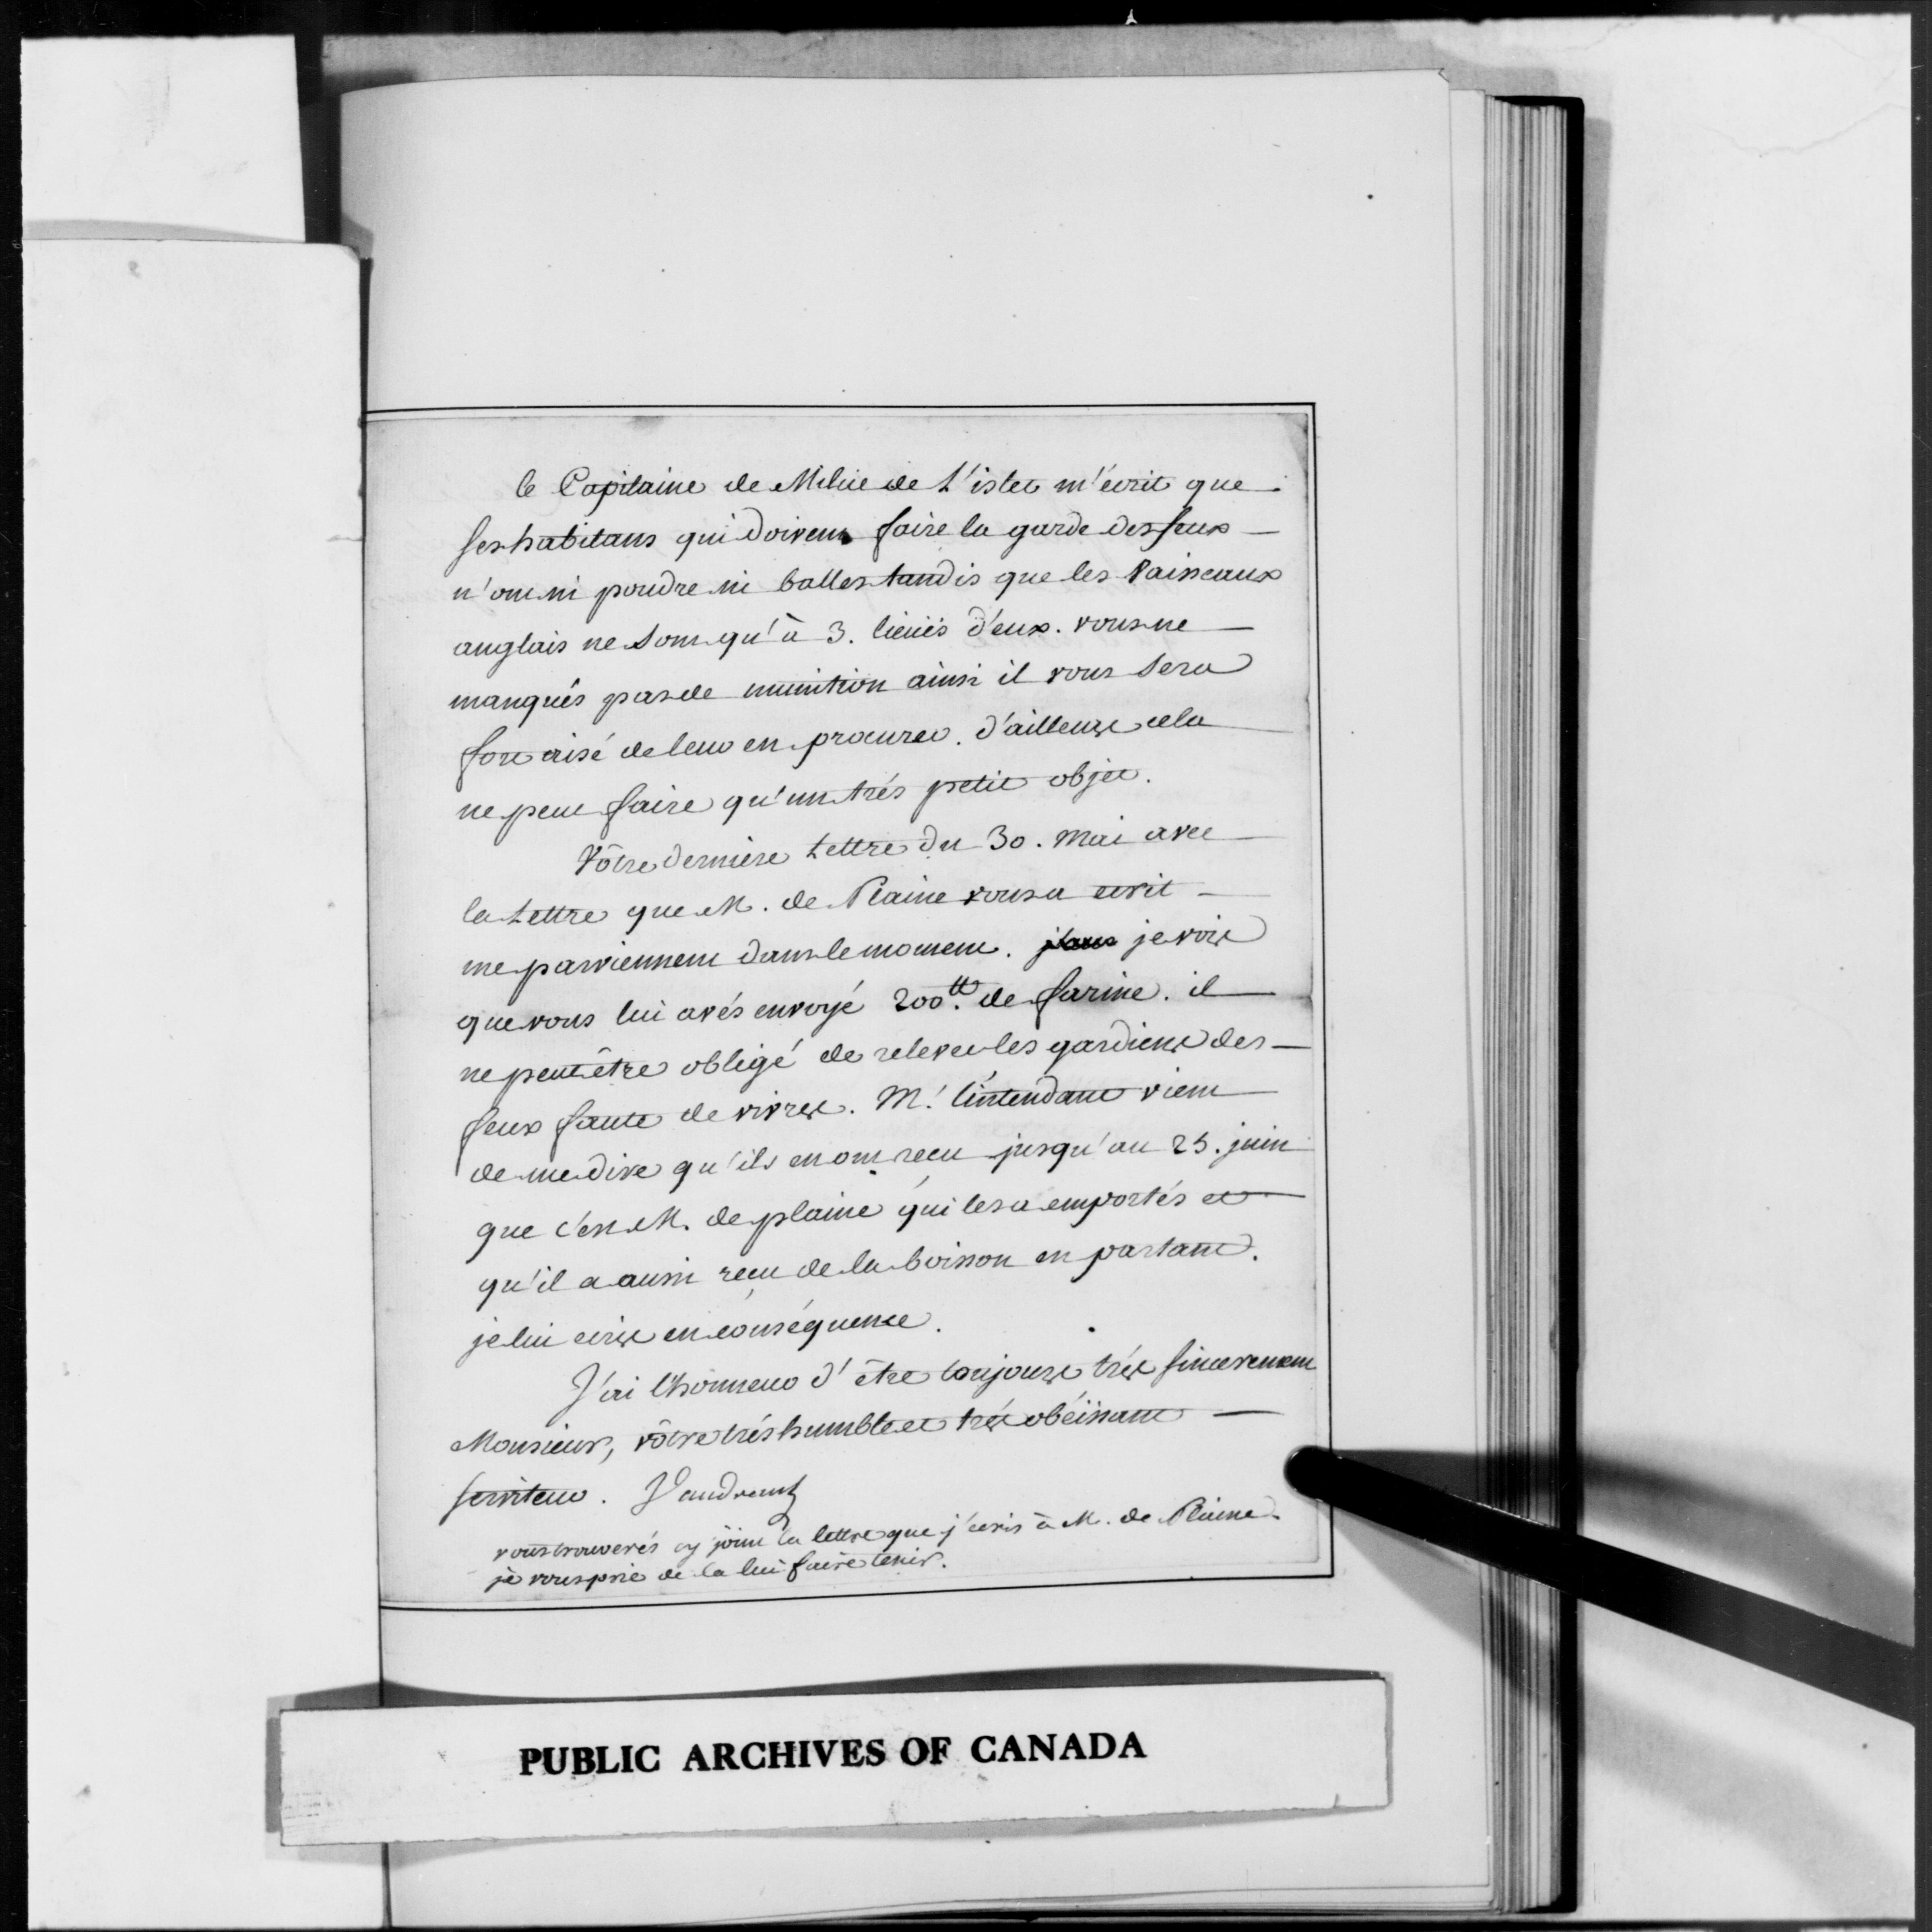 le Capitaine de Milice de L'islet m'écrit que
ses habitans qui doivent faire la garde des feux
n'ont ni poudre ni balles tandis que les Vaisseaux
anglais ne sont qu'à 3. lieuës d'eux. vous ne
manqués pas de munition ainsi il vous sera
fort aisé de leur en procurer. d'ailleurs cela
ne peut faire qu'un trés petit objet.
Vôtre derniere Lettre du 30. Mai avec
la Lettre que M. de Plaine vous a ecrit
me parviennent dans le moment. je vois
que vous lui avés envoyé 200tt. de farine. il
ne peut être obligé de relever les gardiens des
feux faute de vivres. M. l'intendant vient
de me dire qu'ils en ont recu jusqu'au 25. juin
que c'est M. de plaine qui les a emportés et
qu'il a aussi reçu de la boisson en partant.
je lui ecris en conséquence.
J'ai l'honneur d'être toujours très sincerement
Monsieur, vôtre trés humble et très obéissant
serviteur. Vaudreuil
vous trouverés cy joint la lettre que j'ecris à M. de Plaine
je vous prie de la lui faire tenir.
PUBLIC ARCHIVES OF CANADA